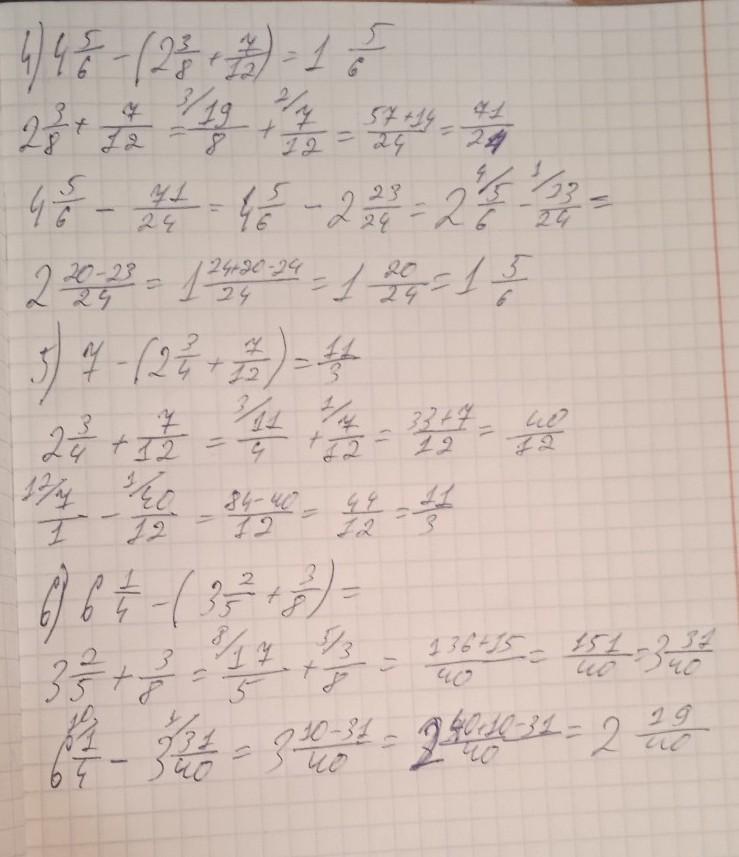 4) 4 5/6 - (2 3/8 + 7/12) = 1 5/6
2 3/8 + 7/12 = 3/ 19/8 + 2/ 7/12 = 57+14/24 = 71/24
4 5/6 - 71/24 = 4 5/6 - 2 23/24 = 2 4/ 5/6 - 1/ 23/24 =
2 20-23/24 = 1 24+20-24/24 = 1 20/24 = 1 5/6
5) 7 - (2 3/4 + 7/12) = 11/3
2 3/4 + 7/12 = 3/ 11/4 + 1/ 7/12 = 33+7/12 = 40/12
12/ 7/1 - 1/ 40/12 = 84-40/12 = 44/12 = 11/3
6) 6 1/4 - (3 2/5 + 3/8) =
3 2/5 + 3/8 = 8/ 17/5 + 5/ 3/8 = 136+15/40 = 151/40 = 3 31/40
6 10/ 1/4 - 3 1/ 31/40 = 3 10-31/40 = 2 40+10-31/40 = 2 19/40